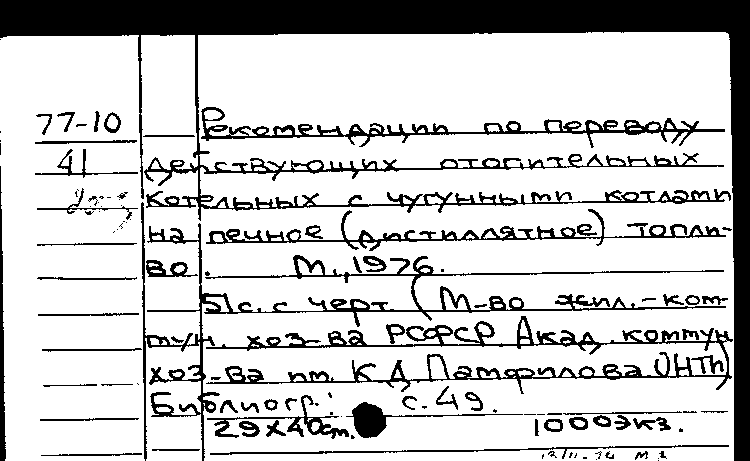 77-10 Рекомендации по переводу
41 действующих отопительных
котельных с чугунными котлами
на печное (дистиллятное) топли-
во. М., 1976.
51с. с черт. (М-во жил.-ком-
мун. хоз-ва РСФСР Акад. коммун.
хоз-ва им. К Д Памфилова ОНТИ)
Библиогр.: с.49.
29х40см. 1000экз.